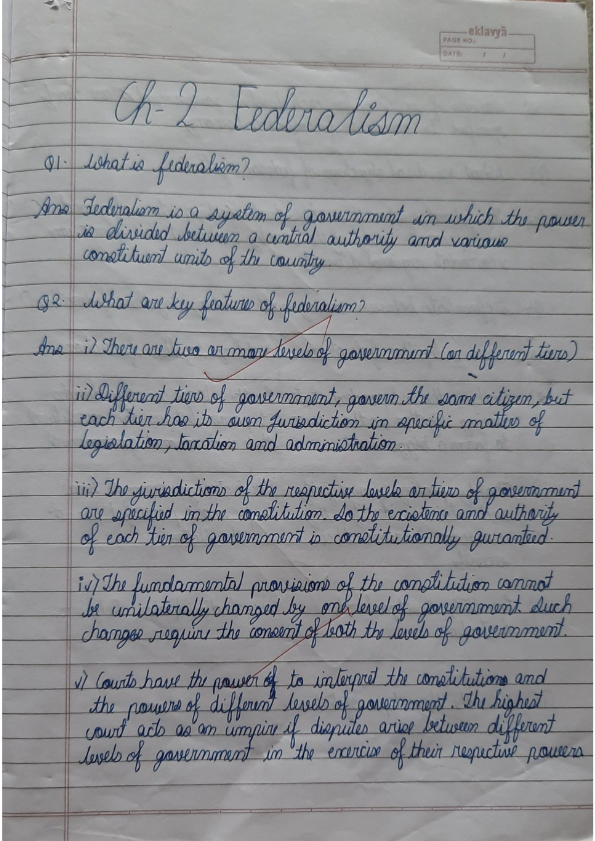 eklavyā
PAGE NO.:
DATE: / /
Ch-2 Federalism
Q1. What is federalism?
Ans Federalism is a system of government in which the power
is divided between a central authority and various
constituent units of the country.
Q2. What are key features of federalism?
Ans i) There are two or more levels of government (or different tiers)
ii) Different tiers of government, govern the same citizen, but
each tier has its own jurisdiction in specific matters of
legislation, taxation and administration.
iii) The jurisdictions of the respective levels or tiers of government
are specified in the constitution. So the existence and authority
of each tier of government is constitutionally guranteed.
iv) The fundamental provisions of the constitution cannot
be unilaterally changed by one level of government. Such
changes require the consent of both the levels of government.
v) Courts have the power of to interpret the constitutions and
the powers of different levels of government. The highest
court acts as an umpire if disputes arise between different
levels of government in the exercise of their respective powers